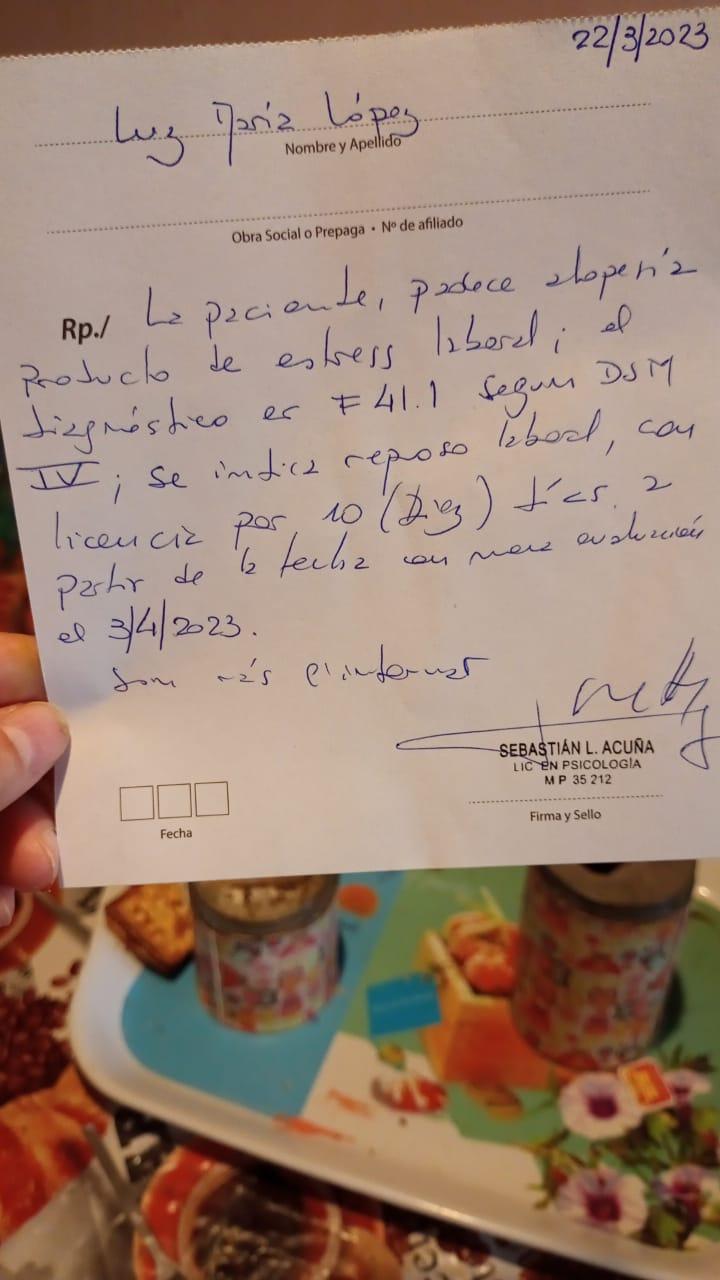 22/3/2023
Luz María López
Nombre y Apellido
Obra Social o Prepaga • Nº de afiliado
Rp./ La paciente, padece alopería
producto de estress laboral; el
diagnóstico es F 41.1 segun DSM
IV; se indica reposo laboral, con
licencia por 10 (Diez) días a
partir de la fecha con nueva evaluación
el 3/4/2023.
SEBASTIÁN L. ACUÑA
LIC EN PSICOLOGÍA
M P 35 212
Fecha
Firma y Sello